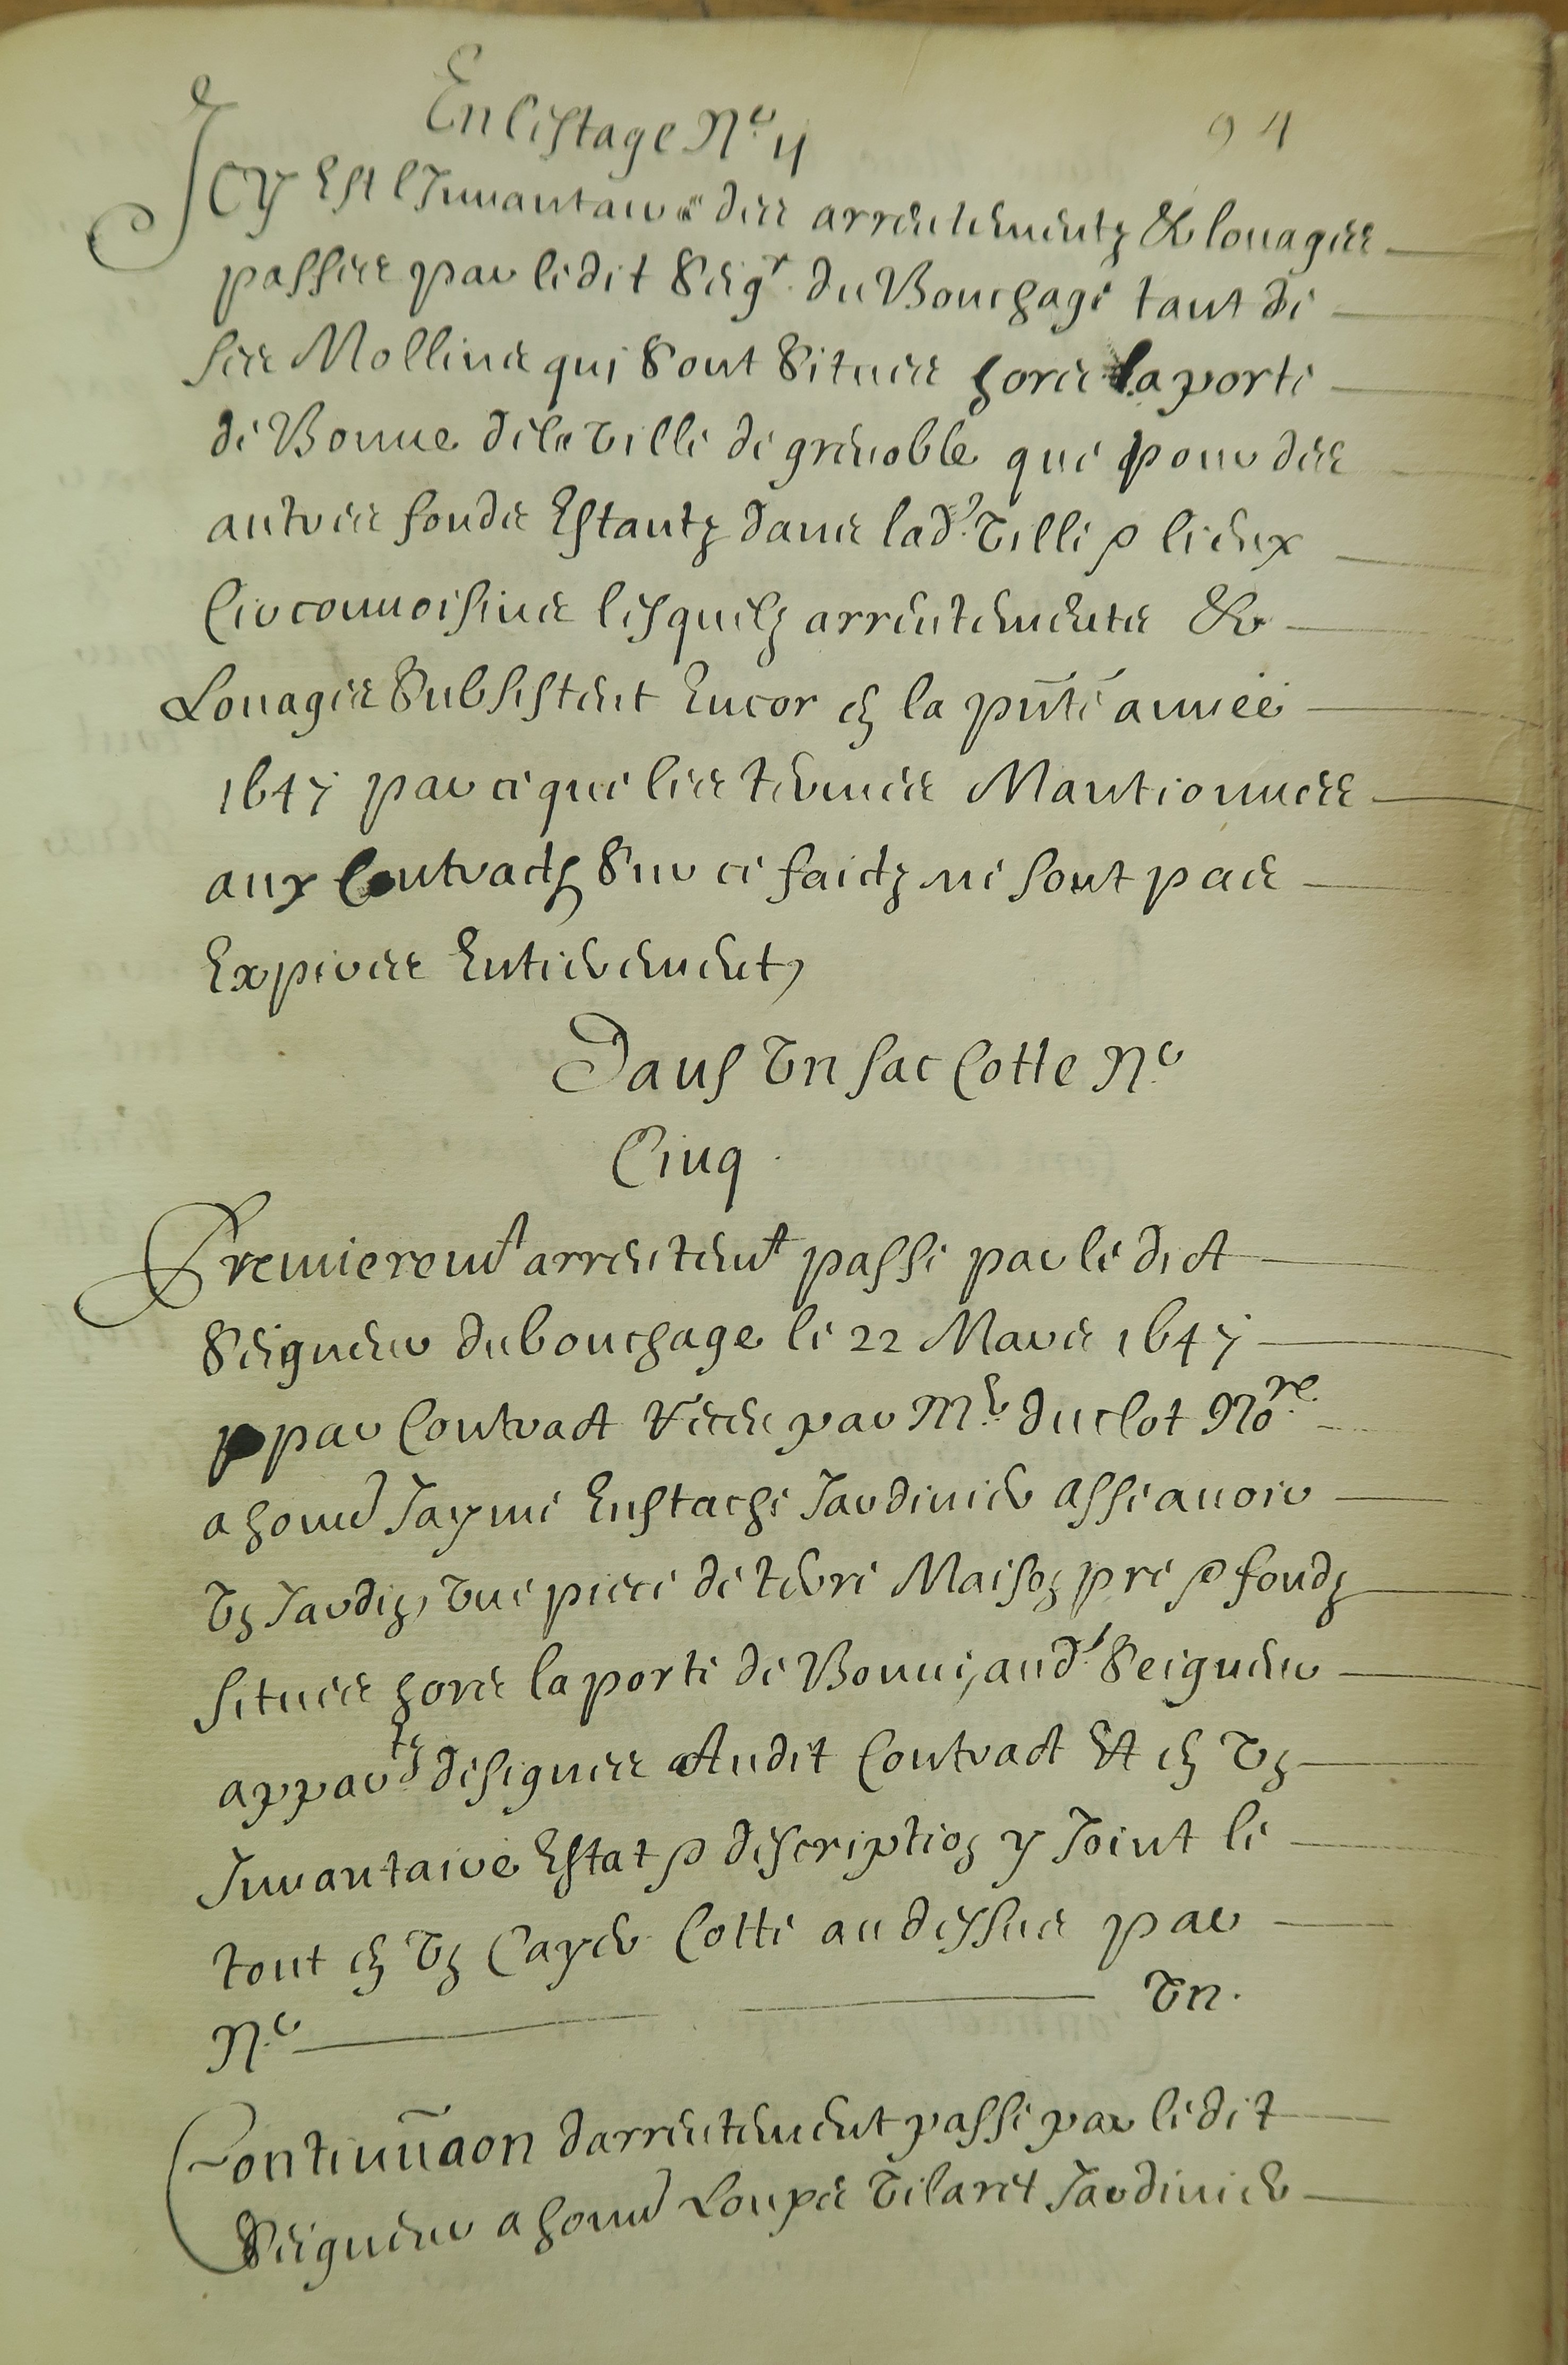 En l'estage N.o 4
94
Icy Est l'Inuantaire des arrentementz & louages
passes par ledit Seig.r du Bouchage tant de
ses Mollins qui sont Situés hors la porte
de Bonne de la Ville de grenoble que pour des
autres fonds Estantz dans lad.e Ville & lieux
Circonuoisins lesquelz arrentements &
Louages Subsistent Encor en la pñte année
1647 par ce que les termes Mantionnes
aux Contractz Sur ce faictz ne sont pas
Expires Entierement,
Dans Vn sac Cotte N.o
Cinq.
Premierem.t arrentem.t passé par le dict
Seigneur du bouchage le 22 Mars 1647
par Contract Receu par M.e du clot No.re
a hon.e Jayme Eustache Jardinier assauoir
Vn Jardin, Vne piece de terre Maison pre & fondz
situes hors la porte de Bonne, aud.t Seigneur
appar.tz designes Audit Contract Et en Vn
Inuantaire Estat & description y Joint le
tout en Vn Cayer Cotté au dessus par
N.o Vn.
Continuãon darrentement passé par ledit
Seigneur a hon.e Loupes Vilaret Jardinier